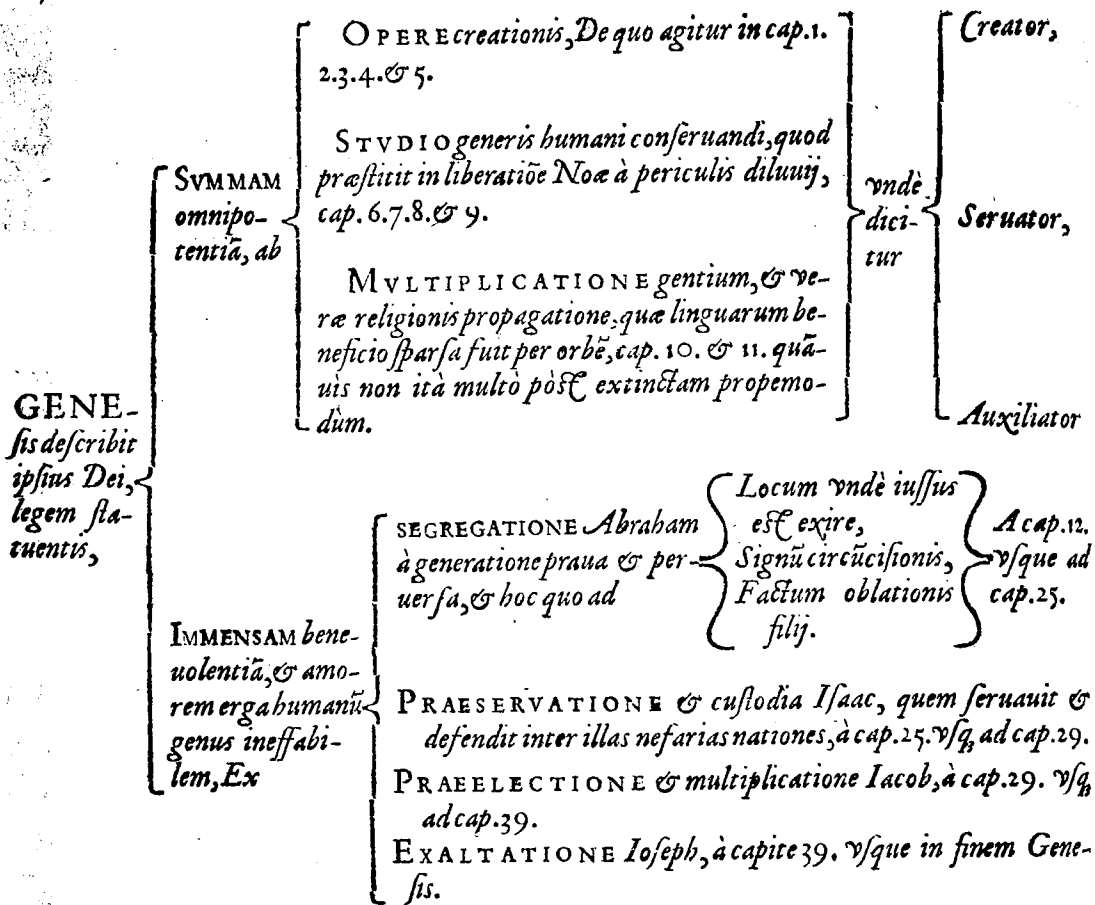 GENE-
sis describit
ipsius Dei,
legem sta-
tuentis,
SVMMAM
omnipo-
tentiã, ab
OPERE creationis, De quo agitur in cap.1.
2.3.4.& 5.
STVDIO generis humani conseruandi, quod
præstitit in liberatiõe Noæ à periculis diluuij,
cap. 6.7.8.& 9.
MVLTIPLICATIONE gentium, & ve-
ræ religionis propagatione, quæ linguarum be-
neficio sparsa fuit per orbẽ, cap. 10. & 11. quã-
uis non ità multò pòst extinctam propemo-
dùm.
vndè
dici-
tur
Creator,
Seruator,
Auxiliator
IMMENSAM bene-
uolentiã, & amo-
rem erga humanũ
genus ineffabi-
lem, Ex
SEGREGATIONE Abraham
à generatione praua & per-
uersa, & hoc quo ad
Locum vndè iussus
est exire,
Signũ circũcisionis,
Factum oblationis
filij.
A cap.12.
vsque ad
cap.25.
PRAESERVATIONE & custodia Isaac, quem seruauit &
defendit inter illas nefarias nationes, à cap.25. vsq; ad cap.29.
PRAEELECTIONE & multiplicatione Iacob, à cap.29. vsq;
ad cap.39.
EXALTATIONE Ioseph, à capite 39. vsque in finem Gene-
sis.